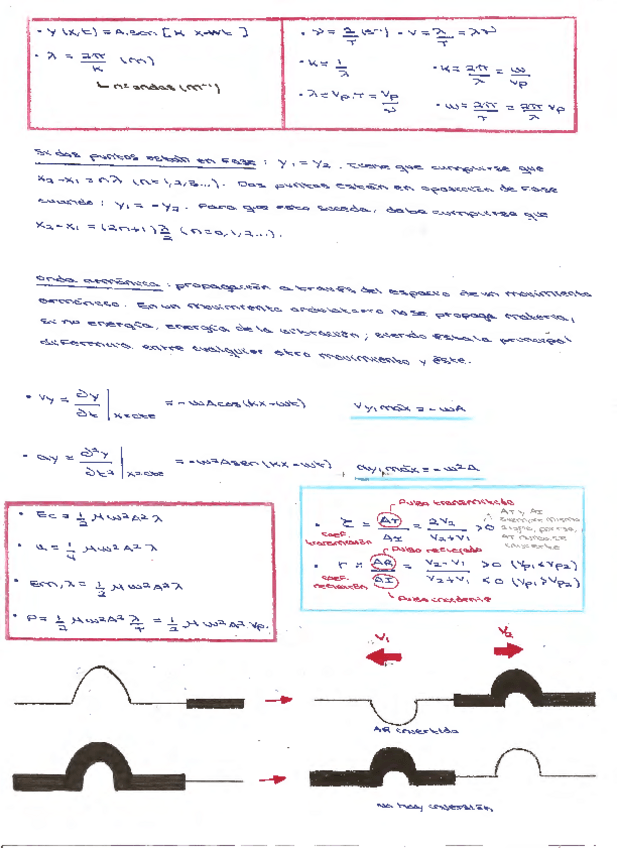 · y(x,t) = A.sen [ K x-wt ]
· λ = 2π/K (m)
nº ondas (m⁻¹)
· ν = 2/T (s⁻¹) · v = λ/T = λν
· k = 1/λ · k = 2π/λ = w/vp
· λ = Vp.T = Vp/ν · w = 2π/T = 2π/λ vp
Si dos puntos están en fase : y₁ = y₂ . Tiene que cumplirse que
x₂-x₁ = nλ (n=1,2,3...). Dos puntos están en oposición de fase
cuando : y₁ = -y₂. Para que esto suceda, debe cumplirse que
x₂-x₁ = (2n+1) λ/2 (n=0,1,2...).
onda armónica : propagación a través del espacio de un movimiento
armónico. En un movimiento ondulatorio no se propaga materia,
si no energía, energía de la vibración ; siendo esta la principal
diferencia entre cualquier otro movimiento y éste.
· Vy = ∂y/∂t |x=cte = -wAcos(kx-wt) Vy,máx = -wA
· ay = ∂²y/∂t² |x=cte = -w²Asen(kx-wt) ay,máx = -w²A
· Ec = 1/2 μw²A²λ
· u = 1/4 μw²A²λ
· Em,λ = 1/2 μw²A²λ
· P = 1/2 μw²A² λ/T = 1/2 μw²A²vp.
Pulso transmitido
· τ = AT/AI = 2V₂/V₂+V₁ >0
coef. transmisión
AT y AI
siempre mismo
signo, porque
AT nunca se
invierte
Pulso reflejado
· r = AR/AI = V₂-V₁/V₂+V₁ >0 (Vp₁<Vp₂)
<0 (Vp₁>Vp₂)
coef. reflexión
Pulso incidente
V₁ V₂
AR invertida
No hay inversión